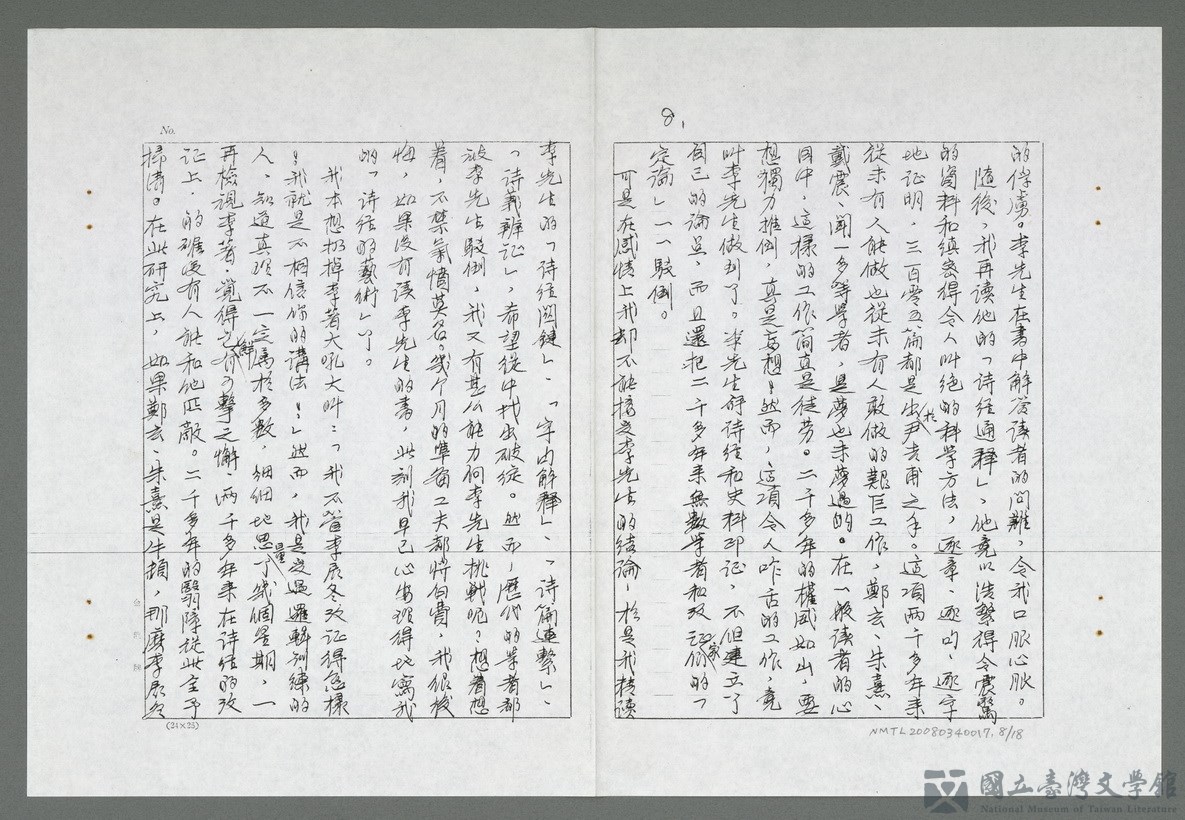 8,
的俘虜。李先生在書中解答讀者的問難，令我口服心服。
隨後，我再讀他的「詩經通釋」，他竟以浩繁得令震驚
的資料和縝密得令人叫絕的科學方法，逐章、逐句、逐字
地证明，三百零五篇都是出於尹吉甫之手。這項兩千多年來
從未有人能做也從未有人敢做的艱巨工作，鄭玄、朱熹、
戴震、聞一多等學者，是夢也未夢過的。在一般读者的心
目中，這樣的工作簡直是徒劳。二千多年的權威如山，要
想獨力推倒，真是妄想！然而，這項令人咋舌的工作，竟
叫李先生做到了。李先生舒詩经和史料印证，不但建立了
自己的論点，而且還把二千多年來無數學者和攷证家的「
定論」一一駁倒。
可是在感情上我却不能接受李先生的結論，於是我精讀
李先生的「詩经关鍵」、「字句解釋」、「詩篇連繫」、
「詩義辨证」，希望從中找出破绽。然而，歷代的学者都
被李先生駁倒，我又有甚么能力向李先生挑戰呢？想着想
着，不禁氣憤莫名。幾个月的準备工夫都將白費，我很後
悔，如果没有读李先生的書，此刻我早已心安理得地寫我
的「詩经的藝術」了。
我本想扔掉李著大吼大叫：「我不管李辰冬攷证得怎樣
！我就是不相信你的講法！」然而，我是受過邏輯訓練的
人，知道真理不一定属於多數，細細地思量了幾個星期，一
再檢視李著，覺得了無可擊之懈，两千多年來在詩经的攷
证上，的確没有人能和他匹敵。二千多年的翳障從此全予
掃清。在此研究上，如果鄭玄、朱熹是牛頓，那麼李辰冬
No.
(24×25)
NMTL20080340017, 8/18
國立臺灣文學館
National Museum of Taiwan Literature